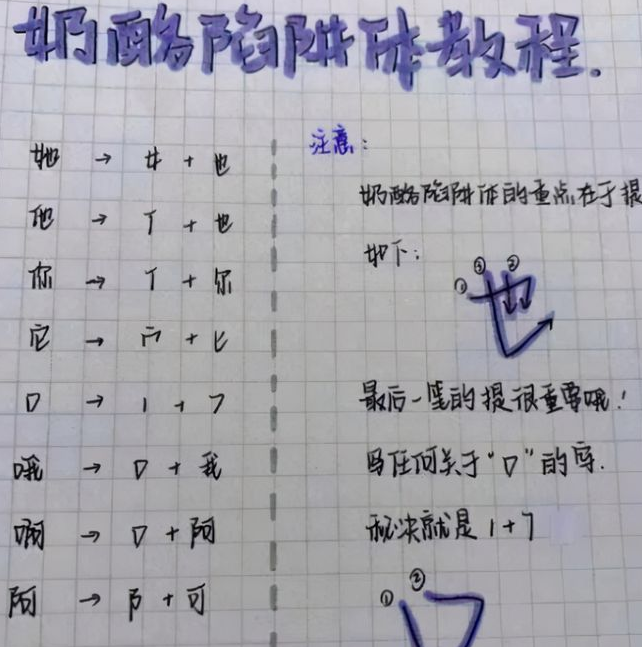 奶酪陷阱体教程.
她 → 女 + 也
他 → 亻 + 也
你 → 亻 + 尔
它 → 宀 + 匕
口 → 1 + 7
哦 → 口 + 我
啊 → 口 + 阿
阿 → 阝 + 可
注意：
奶酪陷阱体的重点在于提
如下：
① ③ ②
也
最后一笔的提很重要哦！
写任何关于“口”的字.
秘诀就是 1+7
① ②
口